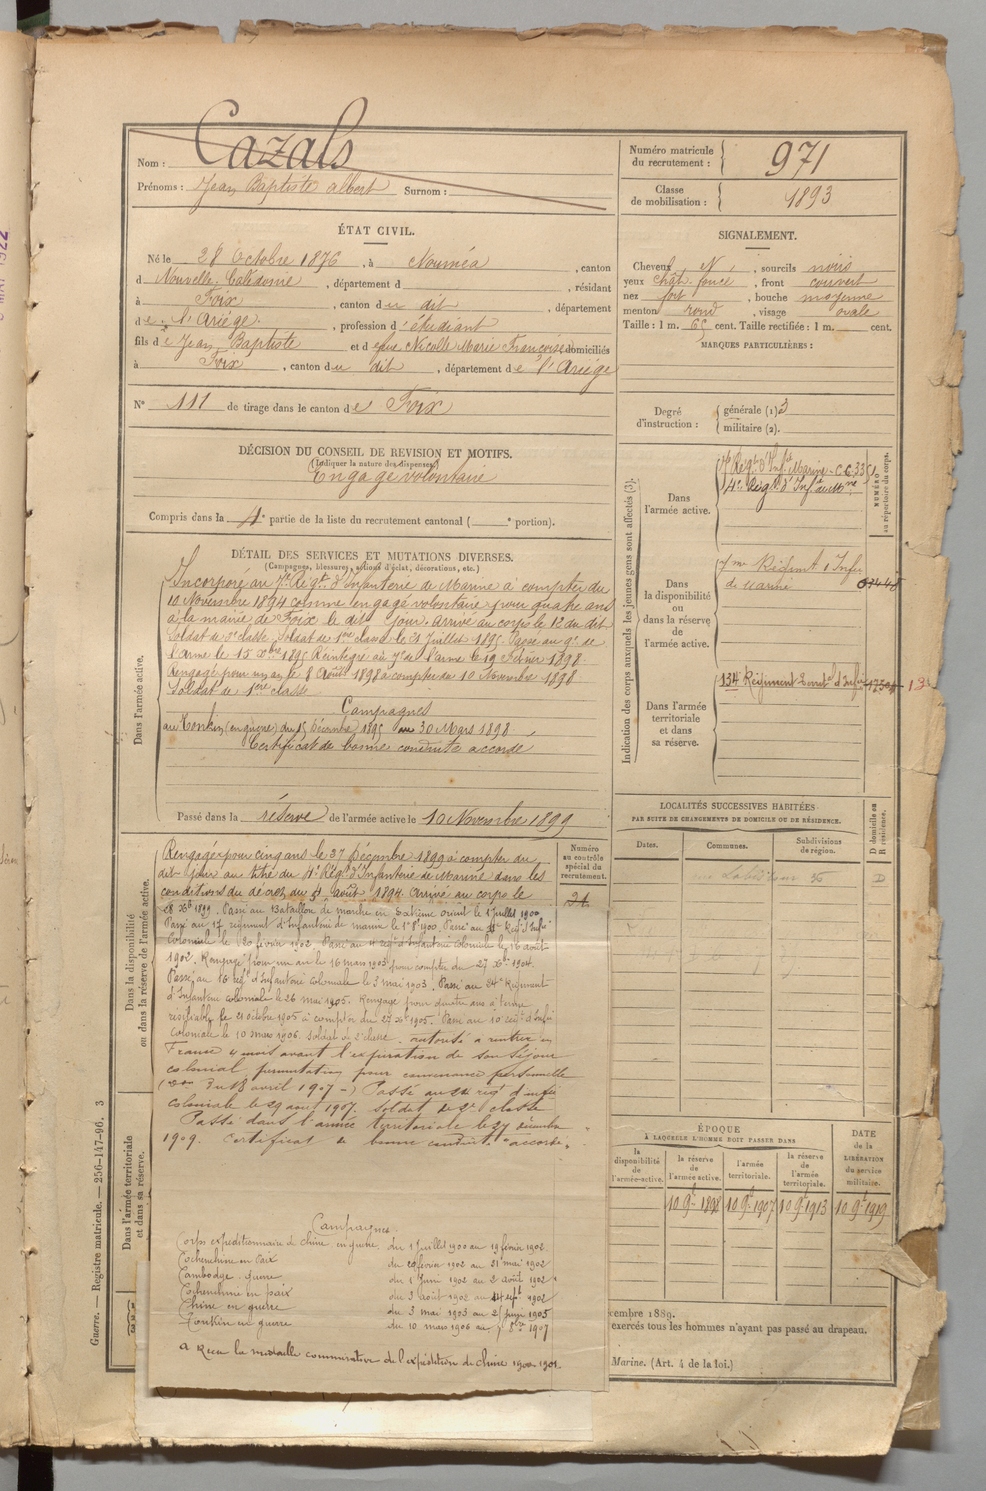 Nom : Cazals
Prénoms : Jean Baptiste albert Surnom :
Numéro matricule du recrutement : 971
Classe de mobilisation : 1893
ÉTAT CIVIL.
Né le 28 Octobre 1876, à Nouméa, canton
d Nouvelle Calédonie, département d , résidant
à Foix, canton du dit, département
de l'Ariège, profession d'étudiant
fils de Jean Baptiste et d Nicolle Marie Françoise domiciliés
à Foix, canton du dit, département de l'Ariége
N° 111 de tirage dans le canton de Foix
SIGNALEMENT.
Cheveux N, sourcils noirs
yeux chât. foncé, front couvert
nez fort, bouche moyenne
menton rond, visage ovale
Taille : 1 m. 65 cent. Taille rectifiée : 1 m. cent.
MARQUES PARTICULIÈRES :
Degré d'instruction : générale (1) 3
militaire (2).
DÉCISION DU CONSEIL DE REVISION ET MOTIFS.
(Indiquer la nature des dispenses.)
Engagé volontaire
Compris dans la 4e partie de la liste du recrutement cantonal ( e portion).
DÉTAIL DES SERVICES ET MUTATIONS DIVERSES.
(Campagnes, blessures, actions d'éclat, décorations, etc.)
Dans l'armée active.
Incorporé au 7e Régt d'Infanterie de Marine à compter du
10 Novembre 1894 comme engagé volontaire pour quatre ans
à la mairie de Foix le dit jour. arrivé au corps le 12 du dit
Soldat de 2e classe. Soldat de 1ère classe le 21 Juillet 1895. Passé au 9e de
l'arme le 15 Xbre 1895 Réintégré au 7e de l'arme le 19 Février 1898.
Rengagé pour un an le 8 Août 1898 à compter du 10 Novembre 1898
Soldat de 1ère classe
Campagnes
au Tonkin (en guerre) du 15 Décembre 1895 au 30 Mars 1898
Certificat de bonne conduite accordé
Passé dans la réserve de l'armée active le 10 Novembre 1899
Indication des corps auxquels les jeunes gens sont affectés (3).
Dans l'armée active.
7e Régt d'Infie Marine
4e Régt d'Infie de Mne
NUMÉRO au répertoire du corps.
Dans la disponibilité ou dans la réserve de l'armée active.
7me Régiment Infie
de marine
Dans l'armée territoriale et dans sa réserve.
134 Régiment Territal d'Infie
LOCALITÉS SUCCESSIVES HABITÉES
PAR SUITE DE CHANGEMENTS DE DOMICILE OU DE RÉSIDENCE.
Dates. Communes. Subdivisions de région. D domicile ou R résidence.
D
Dans la disponibilité ou dans la réserve de l'armée active.
Numéro au contrôle spécial du recrutement.
Rengagé pour cinq ans le 27 Décembre 1899 à compter du
dit jour au titre du 4e Régt d'Infanterie de Marine dans les
conditions du décret du 4 août 1894. Arrivé au corps le
28 Xbre 1899. Passé au Bataillon de marche en Extrême orient le 1 Juillet 1900
Passé au 17 régiment d'Infanterie de marine le 1900. Passé au Régt d'Infie
Coloniale le 20 février 1902. Passé au 4 régt d'Infanterie Coloniale le 16 août
1902. Rengagé pour un an le 16 mars 1903 pour compter du 27 Xbre 1904.
Passé au 16 régt d'Infanterie coloniale le 3 mai 1903. Passé au 24e Régiment
d'Infanterie coloniale le 26 mai 1905. Rengagé pour quatre ans
le 21 octobre 1905 à compter du 27 Xbre 1905. Passé au 10 régt d'Infie
Coloniale le 10 mars 1906. soldat de 2e classe. autorisé à rentrer en
France 4 mois avant l'expiration de son Séjour
colonial, permutation pour convenance personnelle
( du 18 avril 1907 -) Passé au 24 régt d'infie
coloniale le 29 août 1907. Soldat de 2e classe
Passé dans l'armée territoriale le 27 décembre
1909. Certificat de bonne conduite "accordé".
Dans l'armée territoriale et dans sa réserve.
Campagnes
Corps expéditionnaire de chine en guerre du 1 Juillet 1900 au 19 février 1902
Cochenchine en Paix du 20 février 1902 au 31 mai 1902
Cambodge guerre du 1 Juin 1902 au 2 août 1902
Cochenchine en paix du 3 août 1902 au 14 sept 1902
Chine en guerre du 3 mai 1903 au 25 juin 1905
Tonkin en guerre du 10 mars 1906 au 8bre 1907
A Reçu la médaille commémorative de l'expédition de chine 1900-1901.
ÉPOQUE
À LAQUELLE L'HOMME DOIT PASSER DANS
la disponibilité de l'armée active. la réserve de l'armée active. l'armée territoriale. la réserve de l'armée territoriale. DATE de la LIBÉRATION du service militaire.
10 9bre 1898 10 9bre 1907 10 9bre 1913 10 9bre 1919
cembre 1889.
exercés tous les hommes n'ayant pas passé au drapeau.
Marine. (Art. 4 de la loi.)
Guerre. — Registre matricule. — 256-147-96. 3